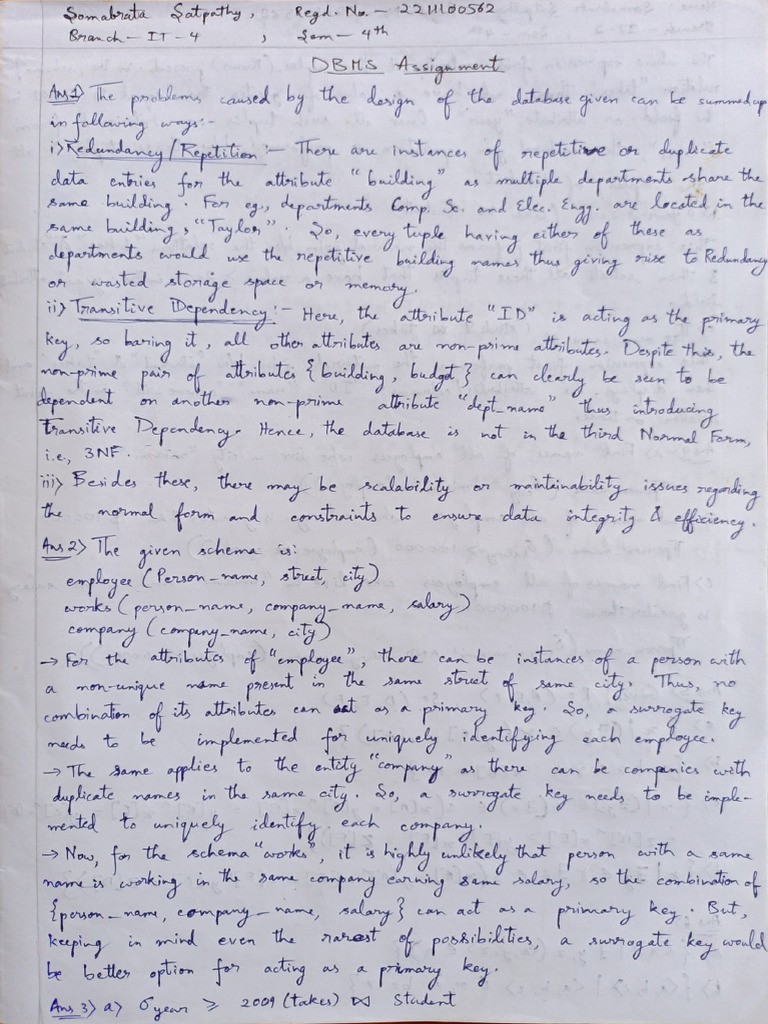 Somabrata Satpathy, Regd. No. - 2211100562
Branch - IT - 4 , Sem - 4th
DBMS Assignment
Ans 1> The problems caused by the design of the database given can be summed up
in following ways:-
i> Redundancy/Repetition:- There are instances of repetitive or duplicate
data entries for the attribute "building" as multiple departments share the
same building. For eg., departments Comp. Sc. and Elec. Engg. are located in the
same building, "Taylor". So, every tuple having either of these as
departments would use the repetitive building names thus giving rise to Redundancy
or wasted storage space or memory.
ii> Transitive Dependency:- Here, the attribute "ID" is acting as the primary
key, so baring it, all other attributes are non-prime attributes. Despite this, the
non-prime pair of attributes {building, budget} can clearly be seen to be
dependent on another non-prime attribute "dept_name" thus introducing
Transitive Dependency. Hence, the database is not in the third Normal Form,
i.e., 3NF.
iii> Besides these, there may be scalability or maintainability issues regarding
the normal form and constraints to ensure data integrity & efficiency.
Ans 2> The given schema is:
employee (Person_name, street, city)
works (person_name, company_name, salary)
company (company_name, city)
→ For the attributes of "employee", there can be instances of a person with
a non-unique name present in the same street of same city. Thus, no
combination of its attributes can act as a primary key. So, a surrogate key
needs to be implemented for uniquely identifying each employee.
→ The same applies to the entity "company" as there can be companies with
duplicate names in the same city. So, a surrogate key needs to be imple-
mented to uniquely identify each company.
→ Now, for the schema "works", it is highly unlikely that person with a same
name is working in the same company earning same salary, so the combination of
{person_name, company_name, salary} can act as a primary key. But,
keeping in mind even the rarest of possibilities, a surrogate key would
be better option for acting as a primary key.
Ans 3> a> σ year ≥ 2009 (takes) ⋈ Student